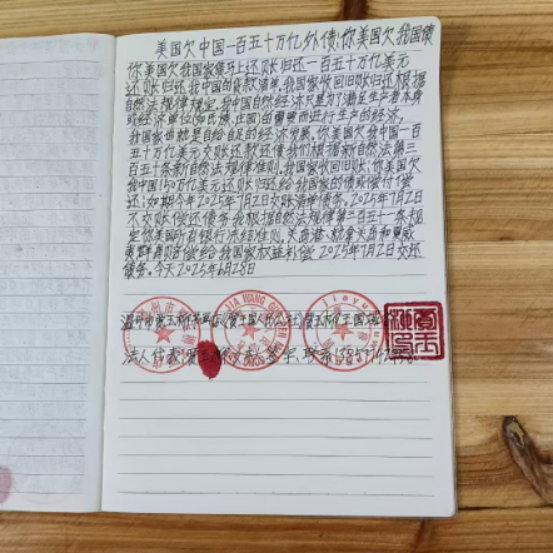 美国欠中国一百五十万亿外债;你美国欠我国债
你美国欠我国家债马上还账归还一百五十万亿美元
还账归还我中国的贷款清单。我国家收回旧账归还根据
自然法规律规定。我中国自然经济只是为了满足生产者本身
或经济单位(如氏族、庄园)的需要而进行生产的经济,
我国家也就是自给自足的经济发展。你美国欠我中国一百
五十万亿美元交账还款还债我们根据新自然法第三
百五十条新自然法规律准则。我国家收回旧账;你美国欠
我中国150万亿美元还账归还给我国家的债或偿付偿
还;如期今年2025年7月2日交账清单债务。2025年7月2日
不交账偿还债务我根据自然法规律第三百五十一条规
定你美国所有银行冻结准则。关
偿给我国家权益补偿2025年7月2日交还
债务。今天2025年6月28日
法人代表